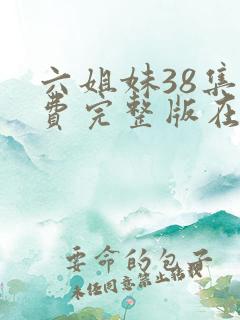 六姐妹38集
费完整版在
要命的包子
未经同意禁止转载